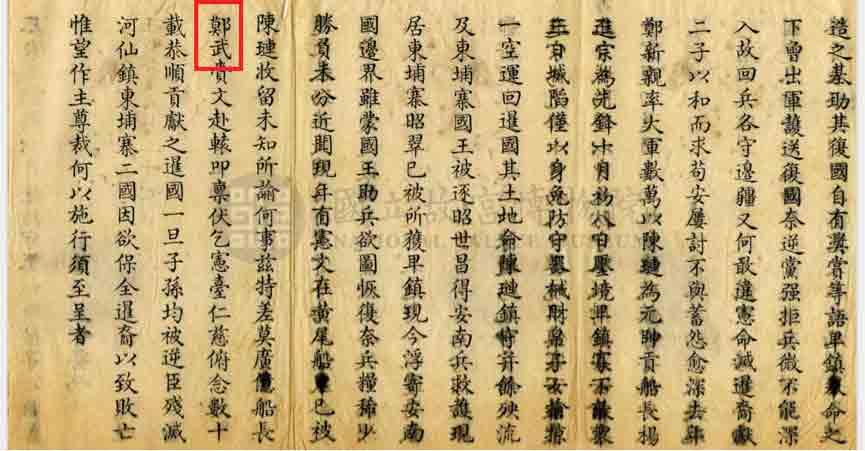 造之基助其復國自有獎賞等語卑鎮承命之
下曾出軍護送復國奈逆黨强拒兵微不能深
入故回兵各守邊疆又何敢違憲命滅暹裔獻
二子以和而求苟安屡討不與蓄怨愈深去年
鄭新親率大軍數萬以陳璉為元帥貢船長楊
進宗為先鋒十月初八日壓境卑鎮寡不敵衆
三日城陷僅以身免防守器械財帛子女搶掠
一空運回暹國其土地命陳璉鎮守并餘殃流
及東埔寨國王被逐昭世昌得安南兵救護現
居東埔寨昭翠已被所獲卑鎮現今浮寄安南
國邊界雖蒙國王助兵欲圖恢復奈兵糧稀少
勝負未分近聞現年有憲文在黃尾船隻已被
陳璉收留未知所諭何事兹特差莫廣億船長
鄭武賫文赴轅叩禀伏乞憲臺仁慈俯念數十
載恭順貢獻之暹國一旦子孫均被逆臣殘滅
河仙鎮東埔寨二國因欲保全暹裔以致敗亡
惟望作主尊裁何以施行須至呈者
國立故宮博物院
NATIONAL PALACE MUSEUM